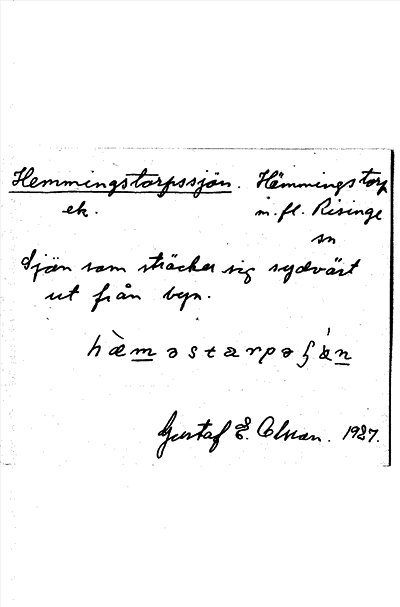 Hemmingstorpssjön. Hämmingstorp
ek. m. fl. Risinge
sn
Sjön som sträcker sig sydvärt
ut från byn.
hæ̀məstarpəʃǿn
Gustaf E. Olsson. 1927.